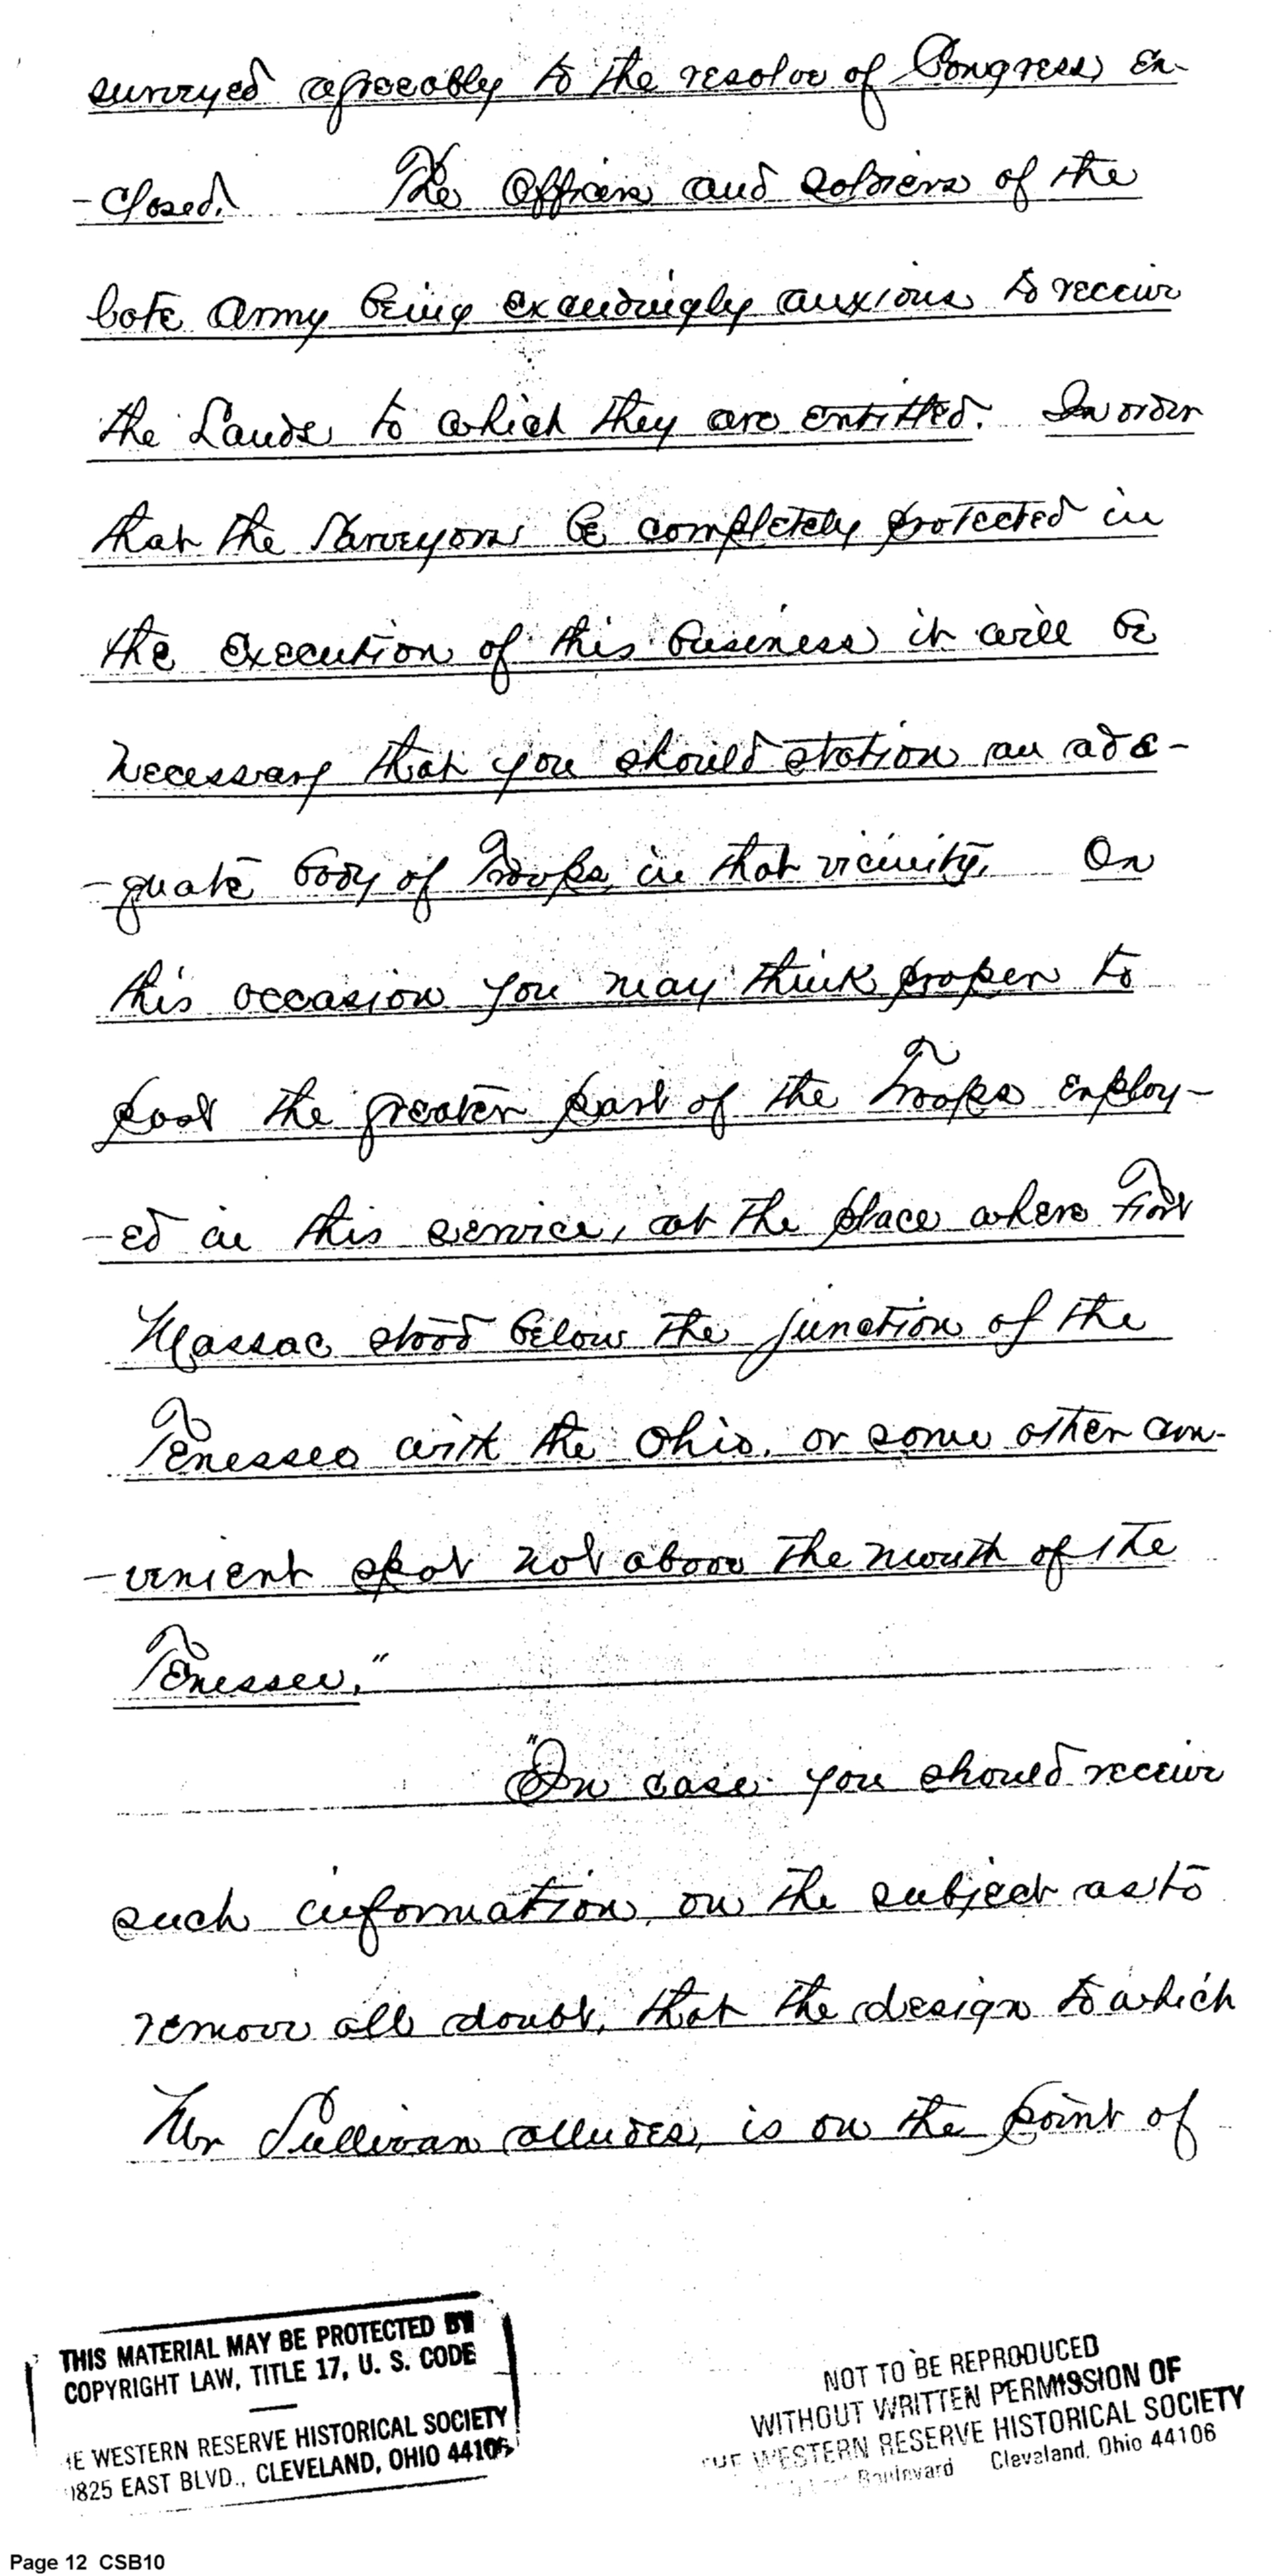 surveyed agreeably to the resolve of Congress, en-
-closed. The Officers and soldiers of the
late Army being exceedingly anxious to receive
the Lands to which they are entitled. In order
that the Surveyors be completely protected in
the execution of this business it will be
necessary that you should station an ade-
-quate body of Troops, in that vicinity. On
this occasion you may think proper to
post the greater part of the Troops employ-
-ed in this service, at the place where Fort
Massac stood below the junction of the
Tenessee with the Ohio, or some other con-
-venient spot not above the mouth of the
Tenessee."
"In case you should receive
such information, on the subject as to
remove all doubt, that the design to which
Mr Sullivan alludes, is on the point of
THIS MATERIAL MAY BE PROTECTED BY
COPYRIGHT LAW, TITLE 17, U. S. CODE
HE WESTERN RESERVE HISTORICAL SOCIETY
0825 EAST BLVD., CLEVELAND, OHIO 44106
NOT TO BE REPRODUCED
WITHOUT WRITTEN PERMISSION OF
THE WESTERN RESERVE HISTORICAL SOCIETY
Boulevard Cleveland, Ohio 44106
Page 12 CSB10